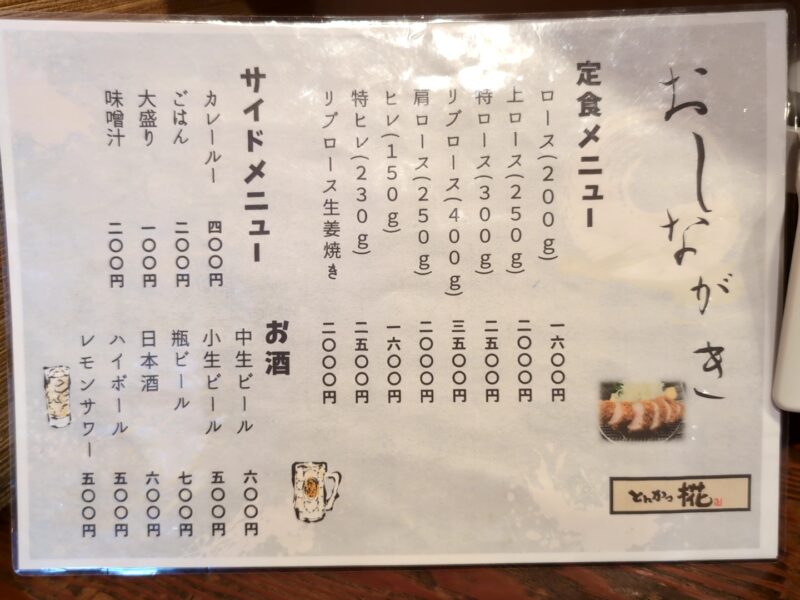 おしながき
とんかつ 椛
定食メニュー
ロース(200g) 一六〇〇円
上ロース(250g) 二〇〇〇円
特ロース(300g) 二五〇〇円
リブロース(400g) 三五〇〇円
肩ロース(250g) 二〇〇〇円
ヒレ(150g) 一六〇〇円
特ヒレ(230g) 二五〇〇円
リブロース生姜焼き 二〇〇〇円
サイドメニュー
カレールー 四〇〇円
ごはん 二〇〇円
大盛り 一〇〇円
味噌汁 二〇〇円
お酒
中生ビール 六〇〇円
小生ビール 五〇〇円
瓶ビール 七〇〇円
日本酒 六〇〇円
ハイボール 五〇〇円
レモンサワー 五〇〇円